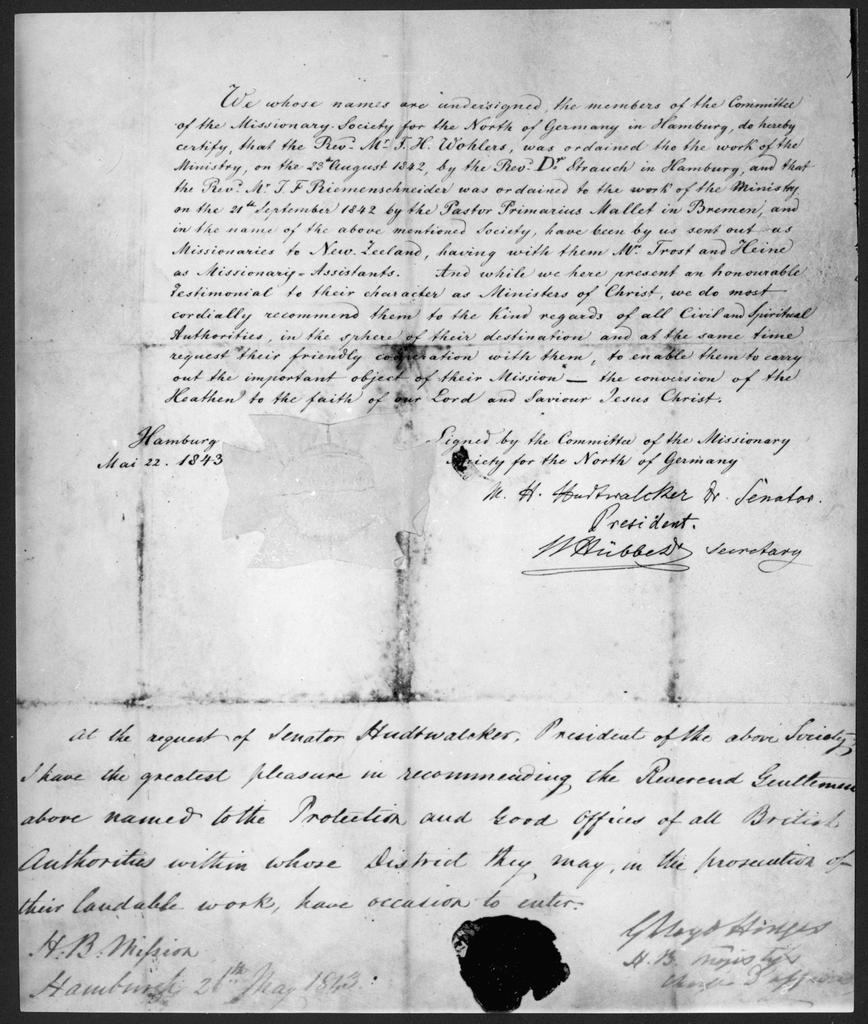 We whose names are undersigned, the members of the Committee
of the Missionary-Society for the North of Germany in Hamburg, do hereby
certify, that the Revd. Mr. J. H. Wohlers, was ordained tho the work of the
Ministry, on the 23d August 1842, by the Revd. Dr. Strauch in Hamburg, and that
the Revd. Mr. J. F. Riemenschneider was ordained to the work of the Ministry
on the 21st September 1842 by the Pastor Primarius Mallet in Bremen, and
in the name of the above mentioned Society, have been by us sent out as
Missionaries to New-Zeeland, having with them Mrs. Trost and Heine
as Missionary-Assistants. And while we here present an honourable
Testimonial to their character as Ministers of Christ, we do most
cordially recommend them to the kind regards of all Civil and Spiritual
Authorities, in the sphere of their destination and at the same time
request their friendly cooperation with them, to enable them to carry
out the important object of their Mission — the conversion of the
Heathen to the faith of our Lord and Saviour Jesus Christ.
Hamburg
Mai 22. 1843
Signed by the Committee of the Missionary
Society for the North of Germany
M. H. Hudtwalcker Dr. Senator.
President.
W Hübbe Dr secretary
At the request of Senator Hudtwalcker, President of the above Society,
I have the greatest pleasure in recommending the Reverend Gentlemen
above named to the Protection and Good Offices of all British
Authorities within whose District they may, in the prosecution of
their laudable work, have occasion to enter.
H. B. Mission
Hamburgh 26th May 1843.
H. B.